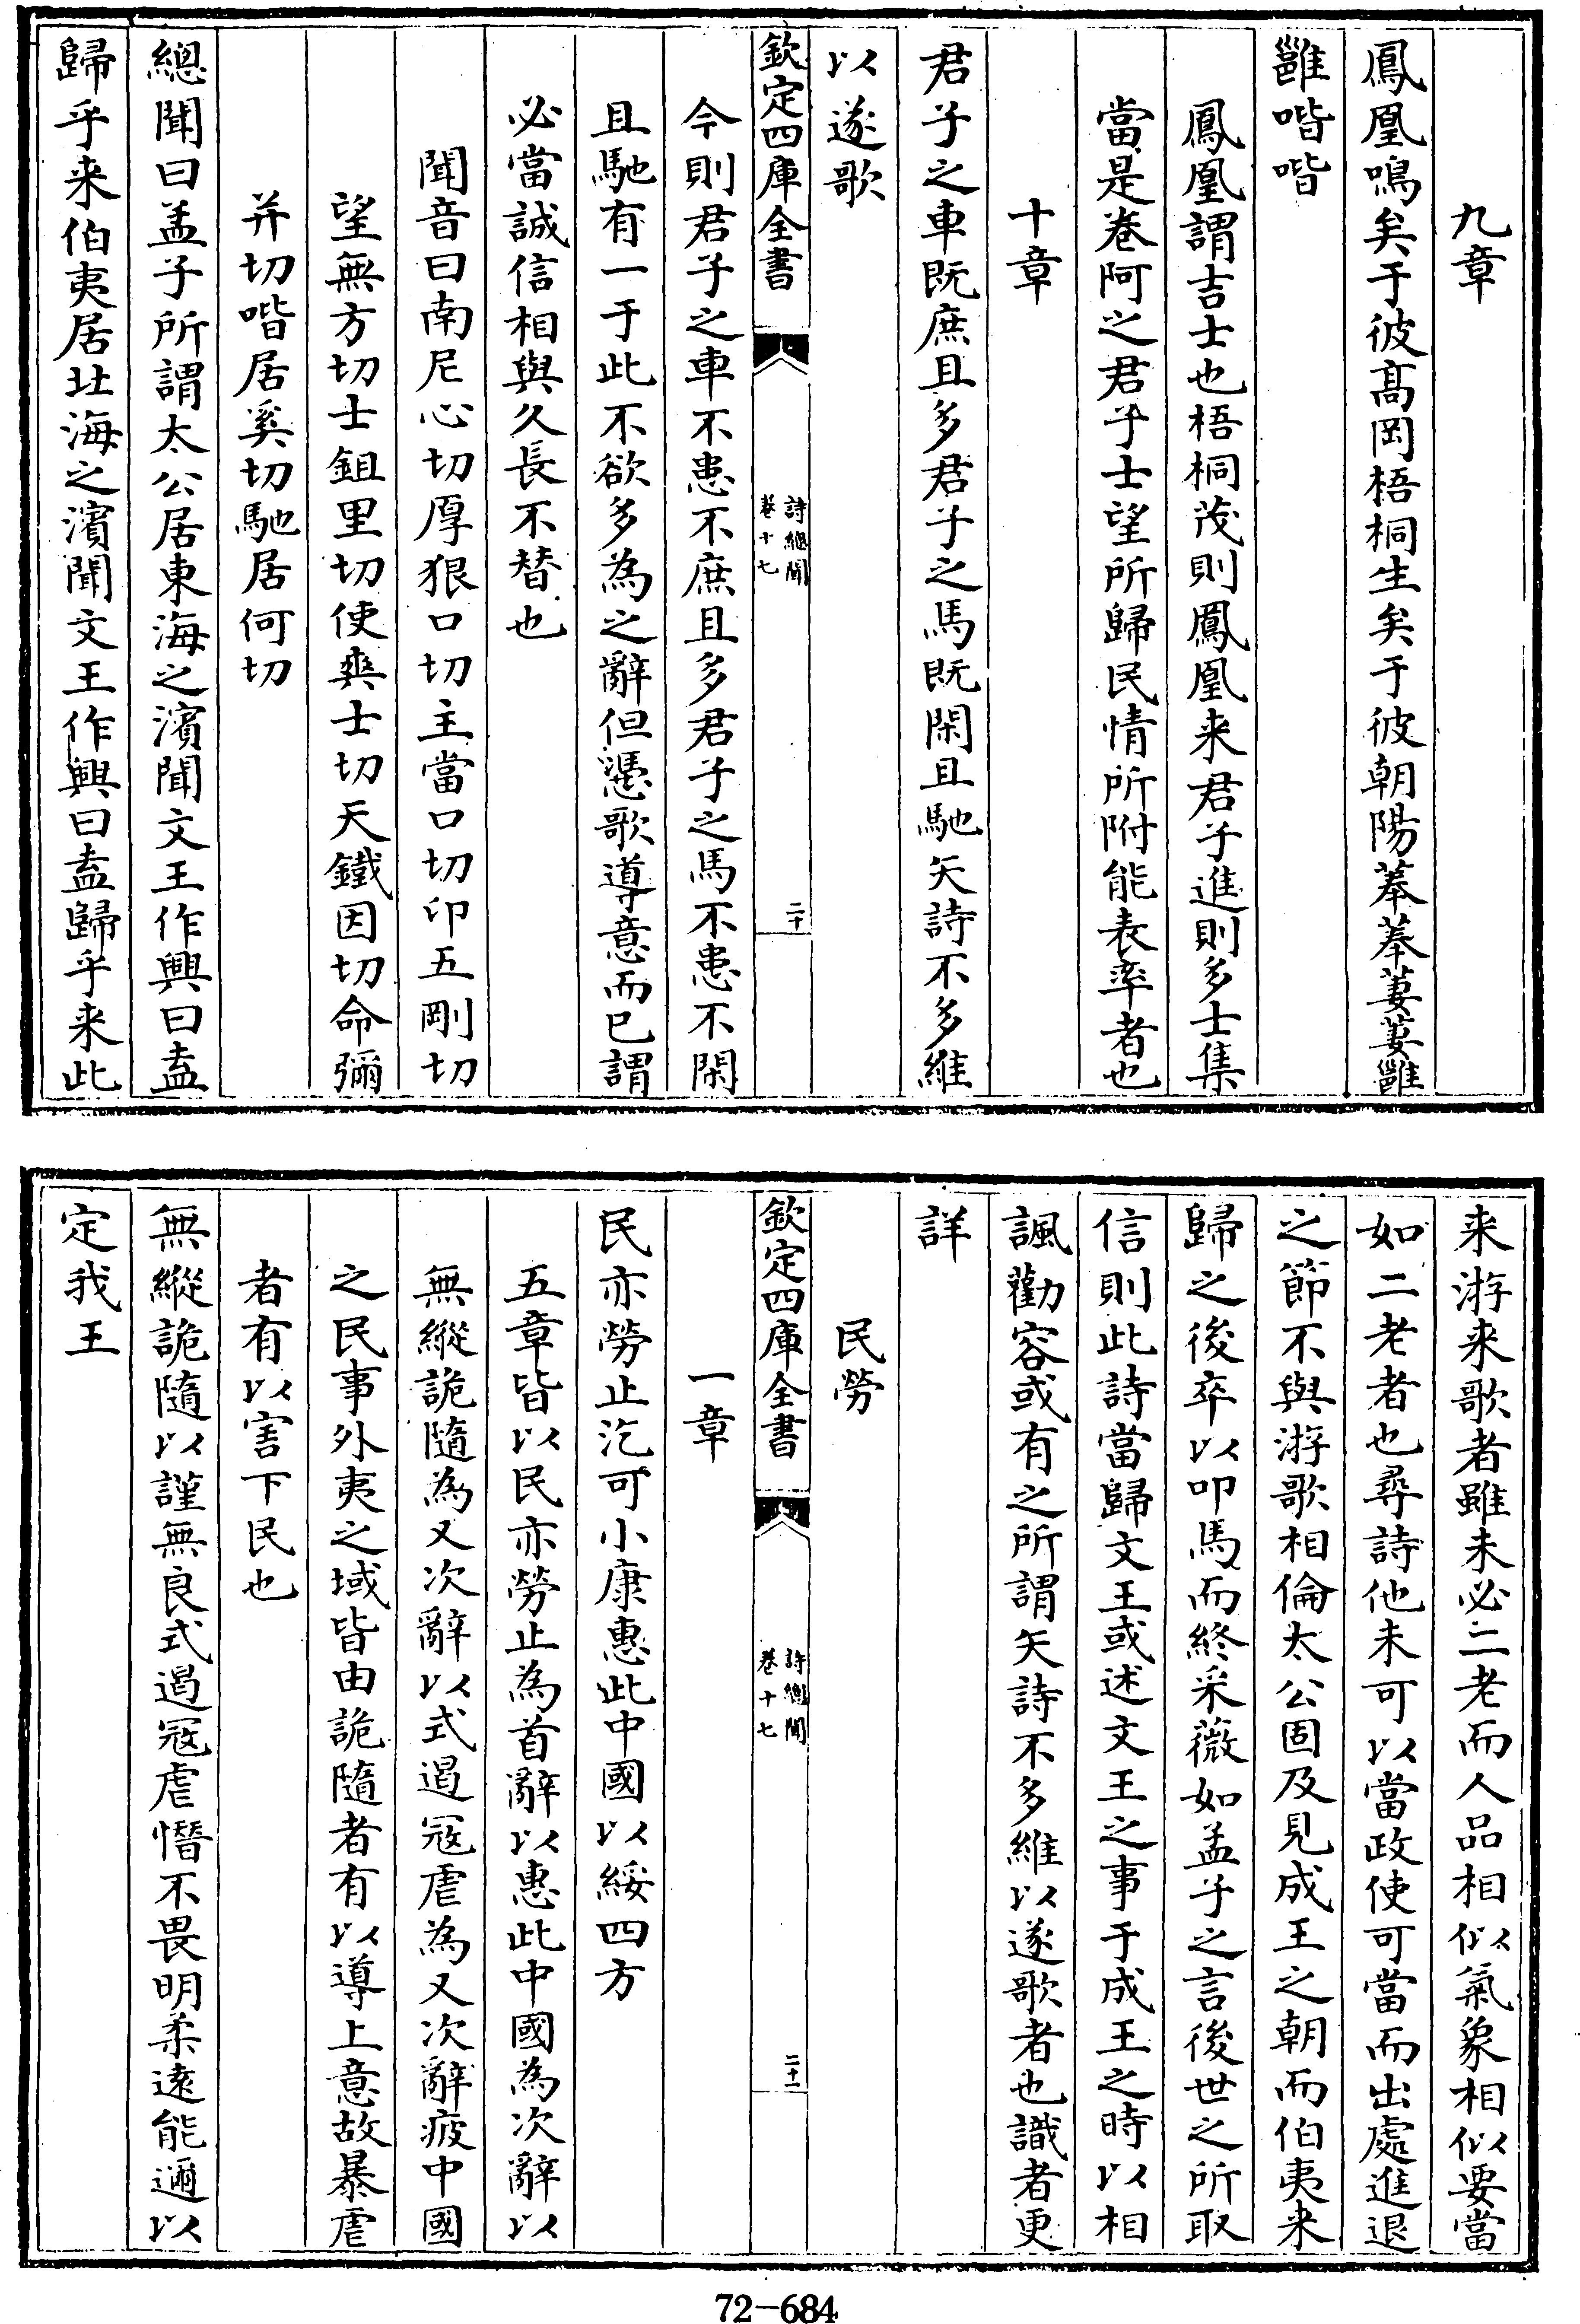 九章
鳳凰鳴矣于彼髙岡梧桐生矣于彼朝陽菶菶萋萋雝
雝喈喈
鳳凰謂吉士也梧桐茂則鳳凰来君子進則多士集
當是卷阿之君子士望所歸民情所附能表率者也
十章
君子之車既庶且多君子之馬既閑且馳矢詩不多維
以遂歌
欽定四庫全書
詩總聞
卷十七
二十
今則君子之車不患不庶且多君子之馬不患不閑
且馳有一于此不欲多為之辭但憑歌導意而已謂
必當誠信相與久長不替也
聞音曰南尼心切厚狠口切主當口切卬五剛切
望無方切士鉏里切使爽士切天鐵因切命彌
并切喈居奚切馳居何切
總聞曰孟子所謂太公居東海之濱聞文王作興曰盍
歸乎来伯夷居北海之濱聞文王作興曰盍歸乎来此
来游来歌者雖未必二老而人品相似氣象相似要當
如二老者也尋詩他未可以當政使可當而出處進退
之節不與游歌相倫太公固及見成王之朝而伯夷来
歸之後卒以叩馬而終采薇如孟子之言後世之所取
信則此詩當歸文王或述文王之事于成王之時以相
諷勸容或有之所謂矢詩不多維以遂歌者也識者更
詳
民勞
欽定四庫全書
詩總聞
卷十七
二十一
一章
民亦勞止汔可小康惠此中國以綏四方
五章皆以民亦勞止為首辭以惠此中國為次辭以
無縱詭隨為又次辭以式遏寇虐為又次辭疲中國
之民事外夷之域皆由詭隨者有以導上意故暴虐
者有以害下民也
無縱詭隨以謹無良式遏寇虐憯不畏明柔遠能邇以
定我王
72-684